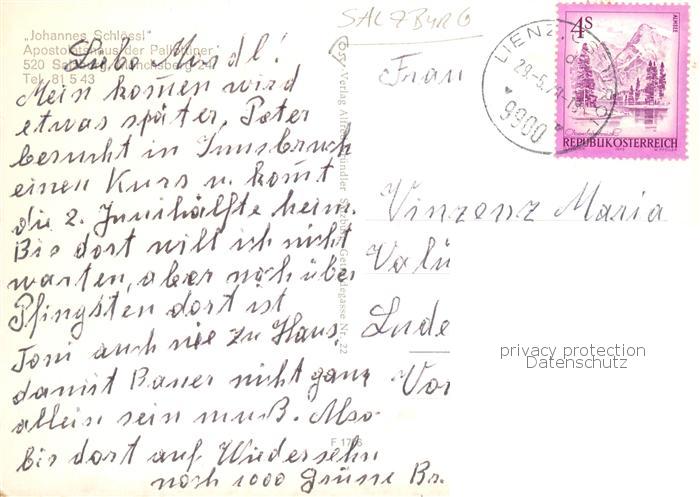 „Johannes Schlössl"
Apostolatshaus der Pallottiner
520 Salzburg, Mönchsberg 24
Tel. 81 5 43
Liebe Mirdl!
Mein komen wird
etwas später, Peter
besucht in Innsbruck
einen Kurs u. komt
die 2. Junihälfte heim.
Bis dort will ich nicht
warten, aber noch über
Pfingsten dort ist
Toni auch nie zu Haus,
damit Bauer nicht ganz
allein sein muß. Also
bis dort auf Wiedersehn
noch 1000 Grüsse Br.
Verlag Salzburg, Getreidegasse Nr. 22
F 17
SALZBURG
Frau
Vinzenz Maria
Valü
Lude
Vor
LIENZ, OSTTIROL
29.-5.79-19
9900
4S
ALMSEE
REPUBLIK ÖSTERREICH
privacy protection
Datenschutz